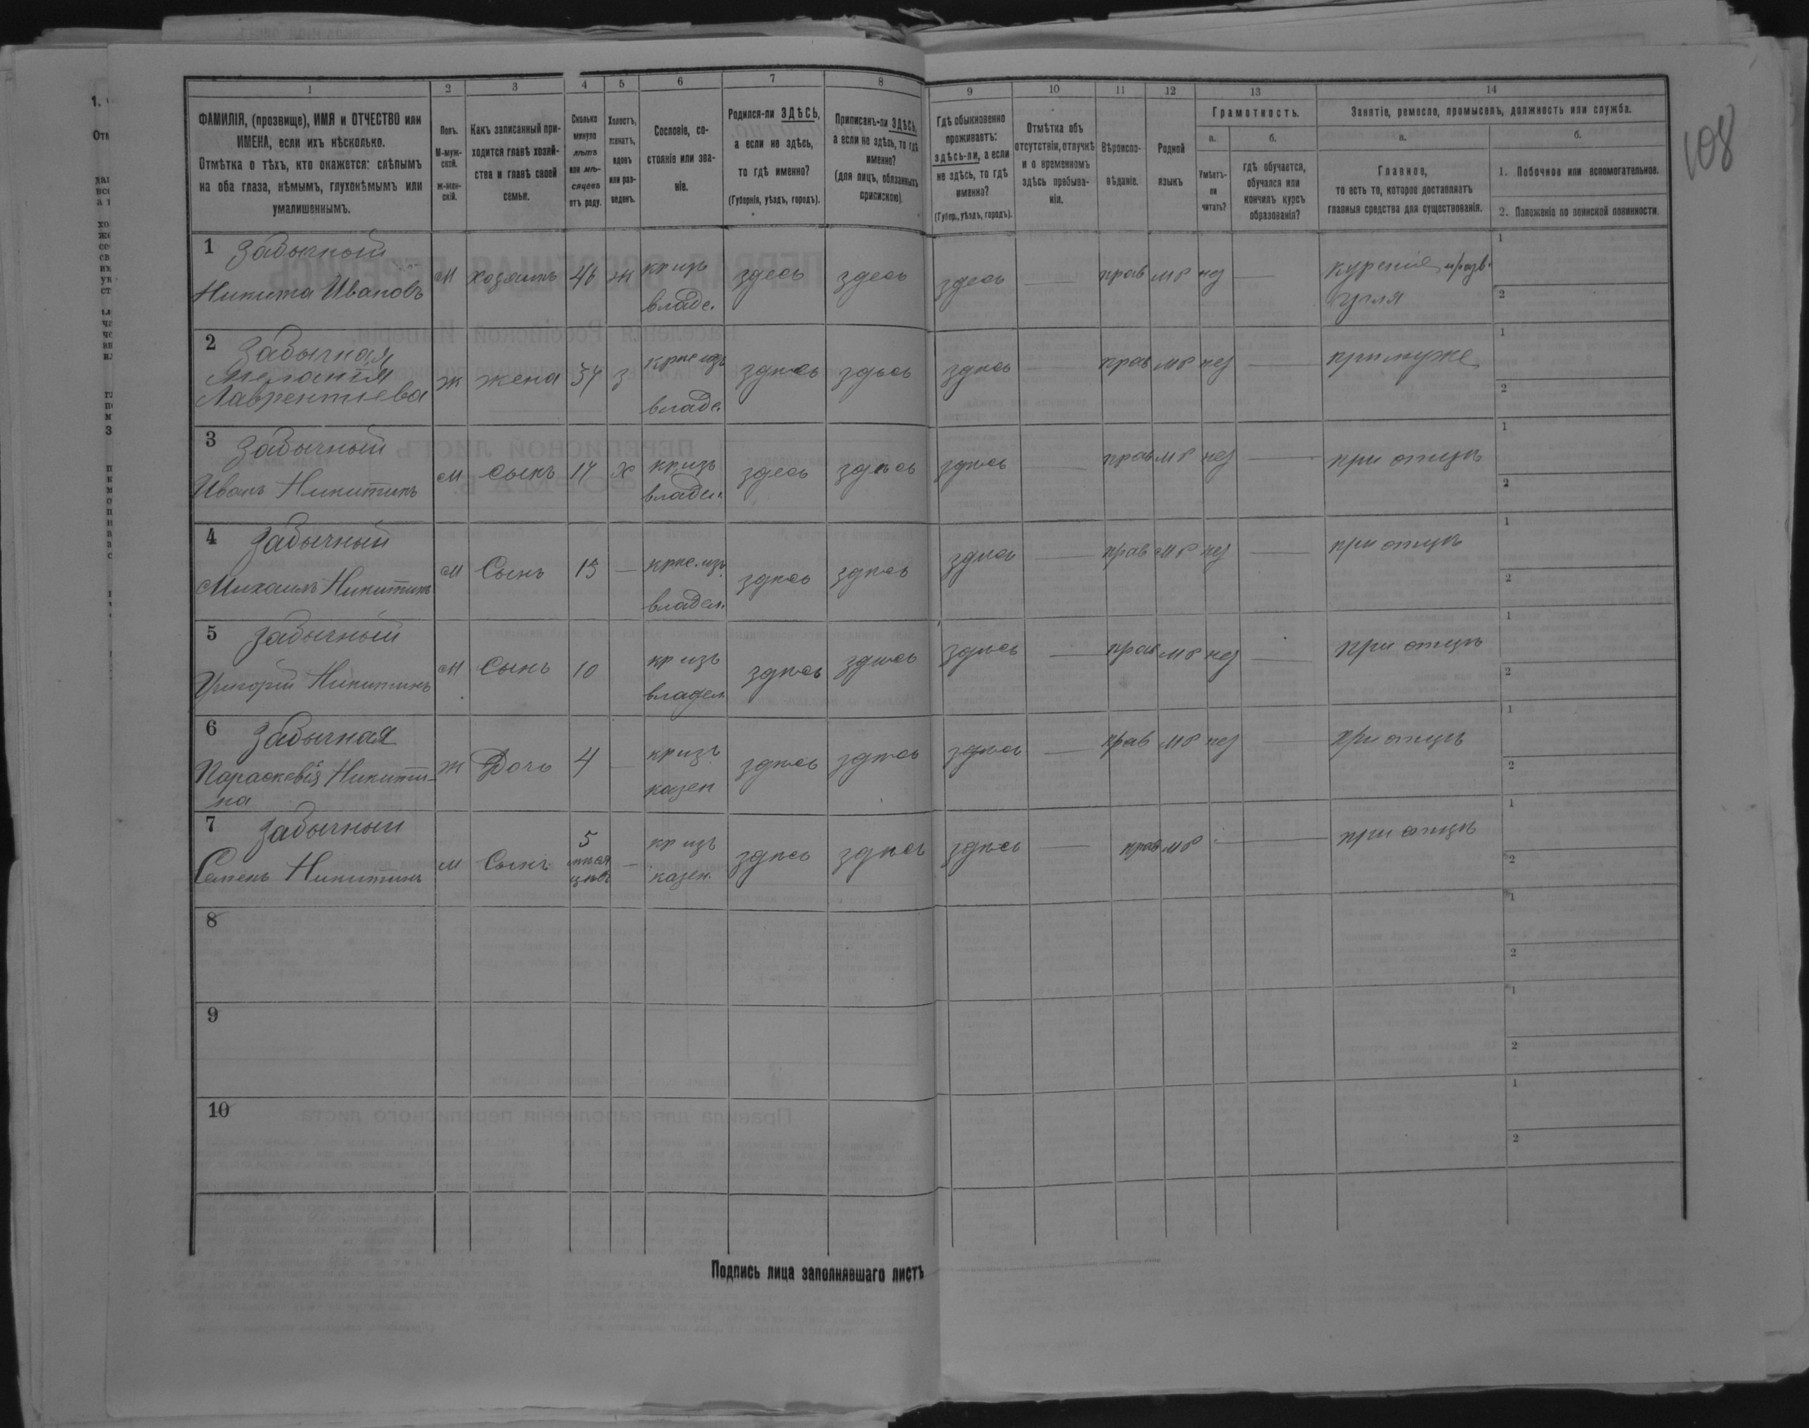 108
1 2 3 4 5 6 7 8 9 10 11 12 13 14
ФАМИЛІЯ, (прозвище), ИМЯ и ОТЧЕСТВО или
ИМЕНА, если ихъ нѣсколько.
Отмѣтка о тѣхъ, кто окажется: слѣпымъ
на оба глаза, нѣмымъ, глухонѣмымъ или
умалишеннымъ.
Полъ.
М-муж-
ской.
Ж-жен-
скій.
Какъ записанный при-
ходится главѣ хозяй-
ства и главѣ своей
семьи.
Сколько
минуло
лѣтъ
или мѣ-
сяцевъ
отъ роду.
Холостъ,
женатъ,
вдовъ
или раз-
веденъ.
Сословіе, со-
стояніе или зва-
ніе.
Родился-ли ЗДѢСЬ,
а если не здѣсь,
то гдѣ именно?
(Губернія, уѣздъ, городъ).
Приписанъ-ли ЗДѢСЬ,
а если не здѣсь, то гдѣ
именно?
(для лицъ, обязанныхъ
припискою).
Гдѣ обыкновенно
проживаетъ:
здѣсь-ли, а если
не здѣсь, то гдѣ
именно?
(Губер., уѣздъ, городъ).
Отмѣтка объ
отсутствіи, отлучкѣ
и о временномъ
здѣсь пребыва-
ніи.
Вѣроиспо-
вѣданіе.
Родной
языкъ
Грамотность.
а. б.
Умѣетъ-
ли
читать?
гдѣ обучается,
обучался или
кончилъ курсъ
образованія?
Занятіе, ремесло, промыселъ, должность или служба.
а. б.
Главное,
то есть то, которое доставляетъ
главныя средства для существованія.
1. Побочное или вспомогательное.
2. Положеніе по воинской повинности.
1 Забычный
Никита Ивановъ м хозяинъ 46 ж кр изъ владе. здесь здесь здесь — прав мр нез — курение угля
1
2
2 Забычная
Меланія
Лаврентіева ж жена 34 з владе. здѣсь здѣсь здѣсь — прав мр нез — при муже
1
2
3 Забычный
Иванъ Никитинъ м сынъ 17 х кр изъ владел. здесь здѣсь здѣсь — прав мр нез — при отцѣ
1
2
4 Забычный
Михаилъ Никитинъ м Сынъ 13 — владел. здѣсь здѣсь здѣсь — прав мр нез — при отцѣ
1
2
5 Забычный
Григорій Никитинъ м Сынъ 10 кр изъ владел. здѣсь здѣсь здѣсь — прав мр нез — при отцѣ
1
2
6 Забычная
Параскевія Никити-
на ж Дочь 4 — кр изъ казен здѣсь здѣсь здѣсь — прав мр нез — при отцѣ
1
2
7 Забычный
Семенъ Никитинъ м Сынъ 5 месяцевъ — кр изъ казен. здѣсь здѣсь здѣсь — прав мр — при отцѣ
1
2
8
1
2
9
1
2
10
1
2
Подпись лица заполнявшаго листъ